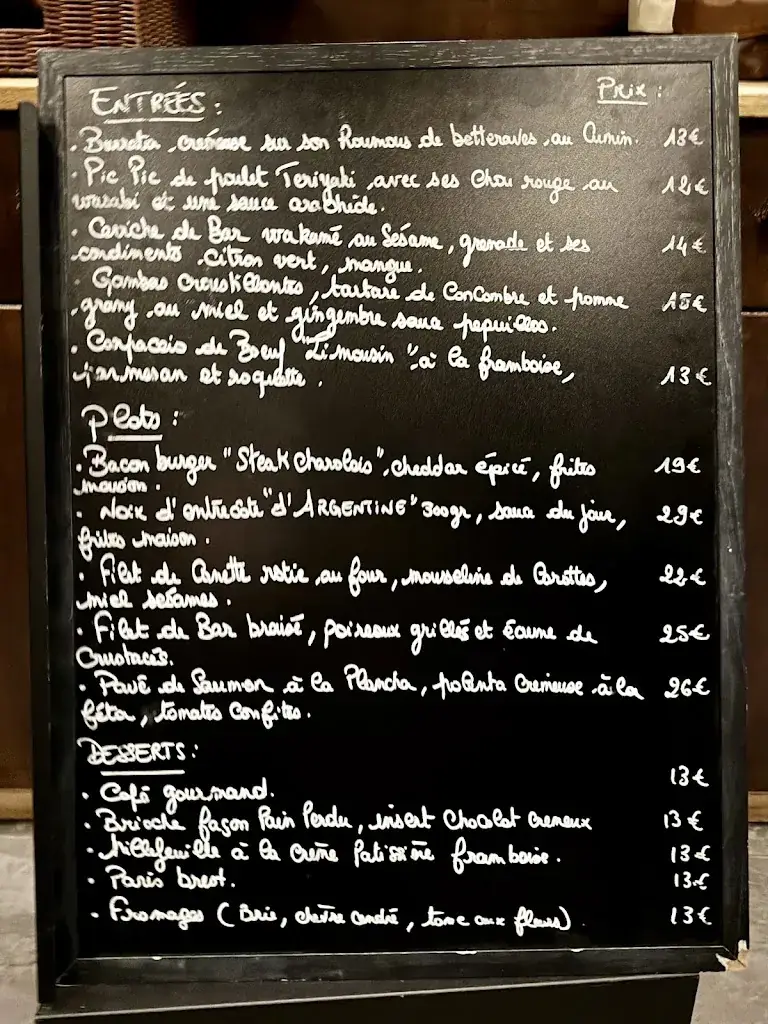 ENTRÉES : Prix :
. Burrata crémeuse sur son Houmous de betteraves au Cumin. 13€
. Pic Pic de poulet Teriyaki avec ses Chou rouge au 12€
wasabi et une sauce arachide.
. Ceviche de Bar wakamé au Sésame, grenade et ses 14€
condiments citron vert, mangue.
. Gambas Croustillantes, tartare de Concombre et pomme 15€
grany au miel et gingembre sauce
. Carpaccio de Boeuf "Limousin" à la framboise, 13€
parmesan et roquette.
Plats :
. Bacon burger "Steak Charolais", cheddar épicé, frites 19€
maison.
. Noix d'entrecôte "d'ARGENTINE" 300gr, sauce du jour, 29€
frites maison.
. Filet de Canette rotie au four, mousseline de Carottes, 22€
miel sésames.
. Filet de Bar braisé, poireaux grillés et écume de 25€
Crustacés.
. Pavé de Saumon à la Plancha, polenta Crémeuse à la 26€
féta, tomates confites.
DESSERTS :
. Café gourmand. 13€
. Brioche façon Pain Perdu, insert Chocolat Cremeux 13€
. Millefeuille à la Crème Patissière framboise. 13€
. Paris brest. 13€
. Fromages (Brie, chèvre cendré, tome aux fleurs). 13€